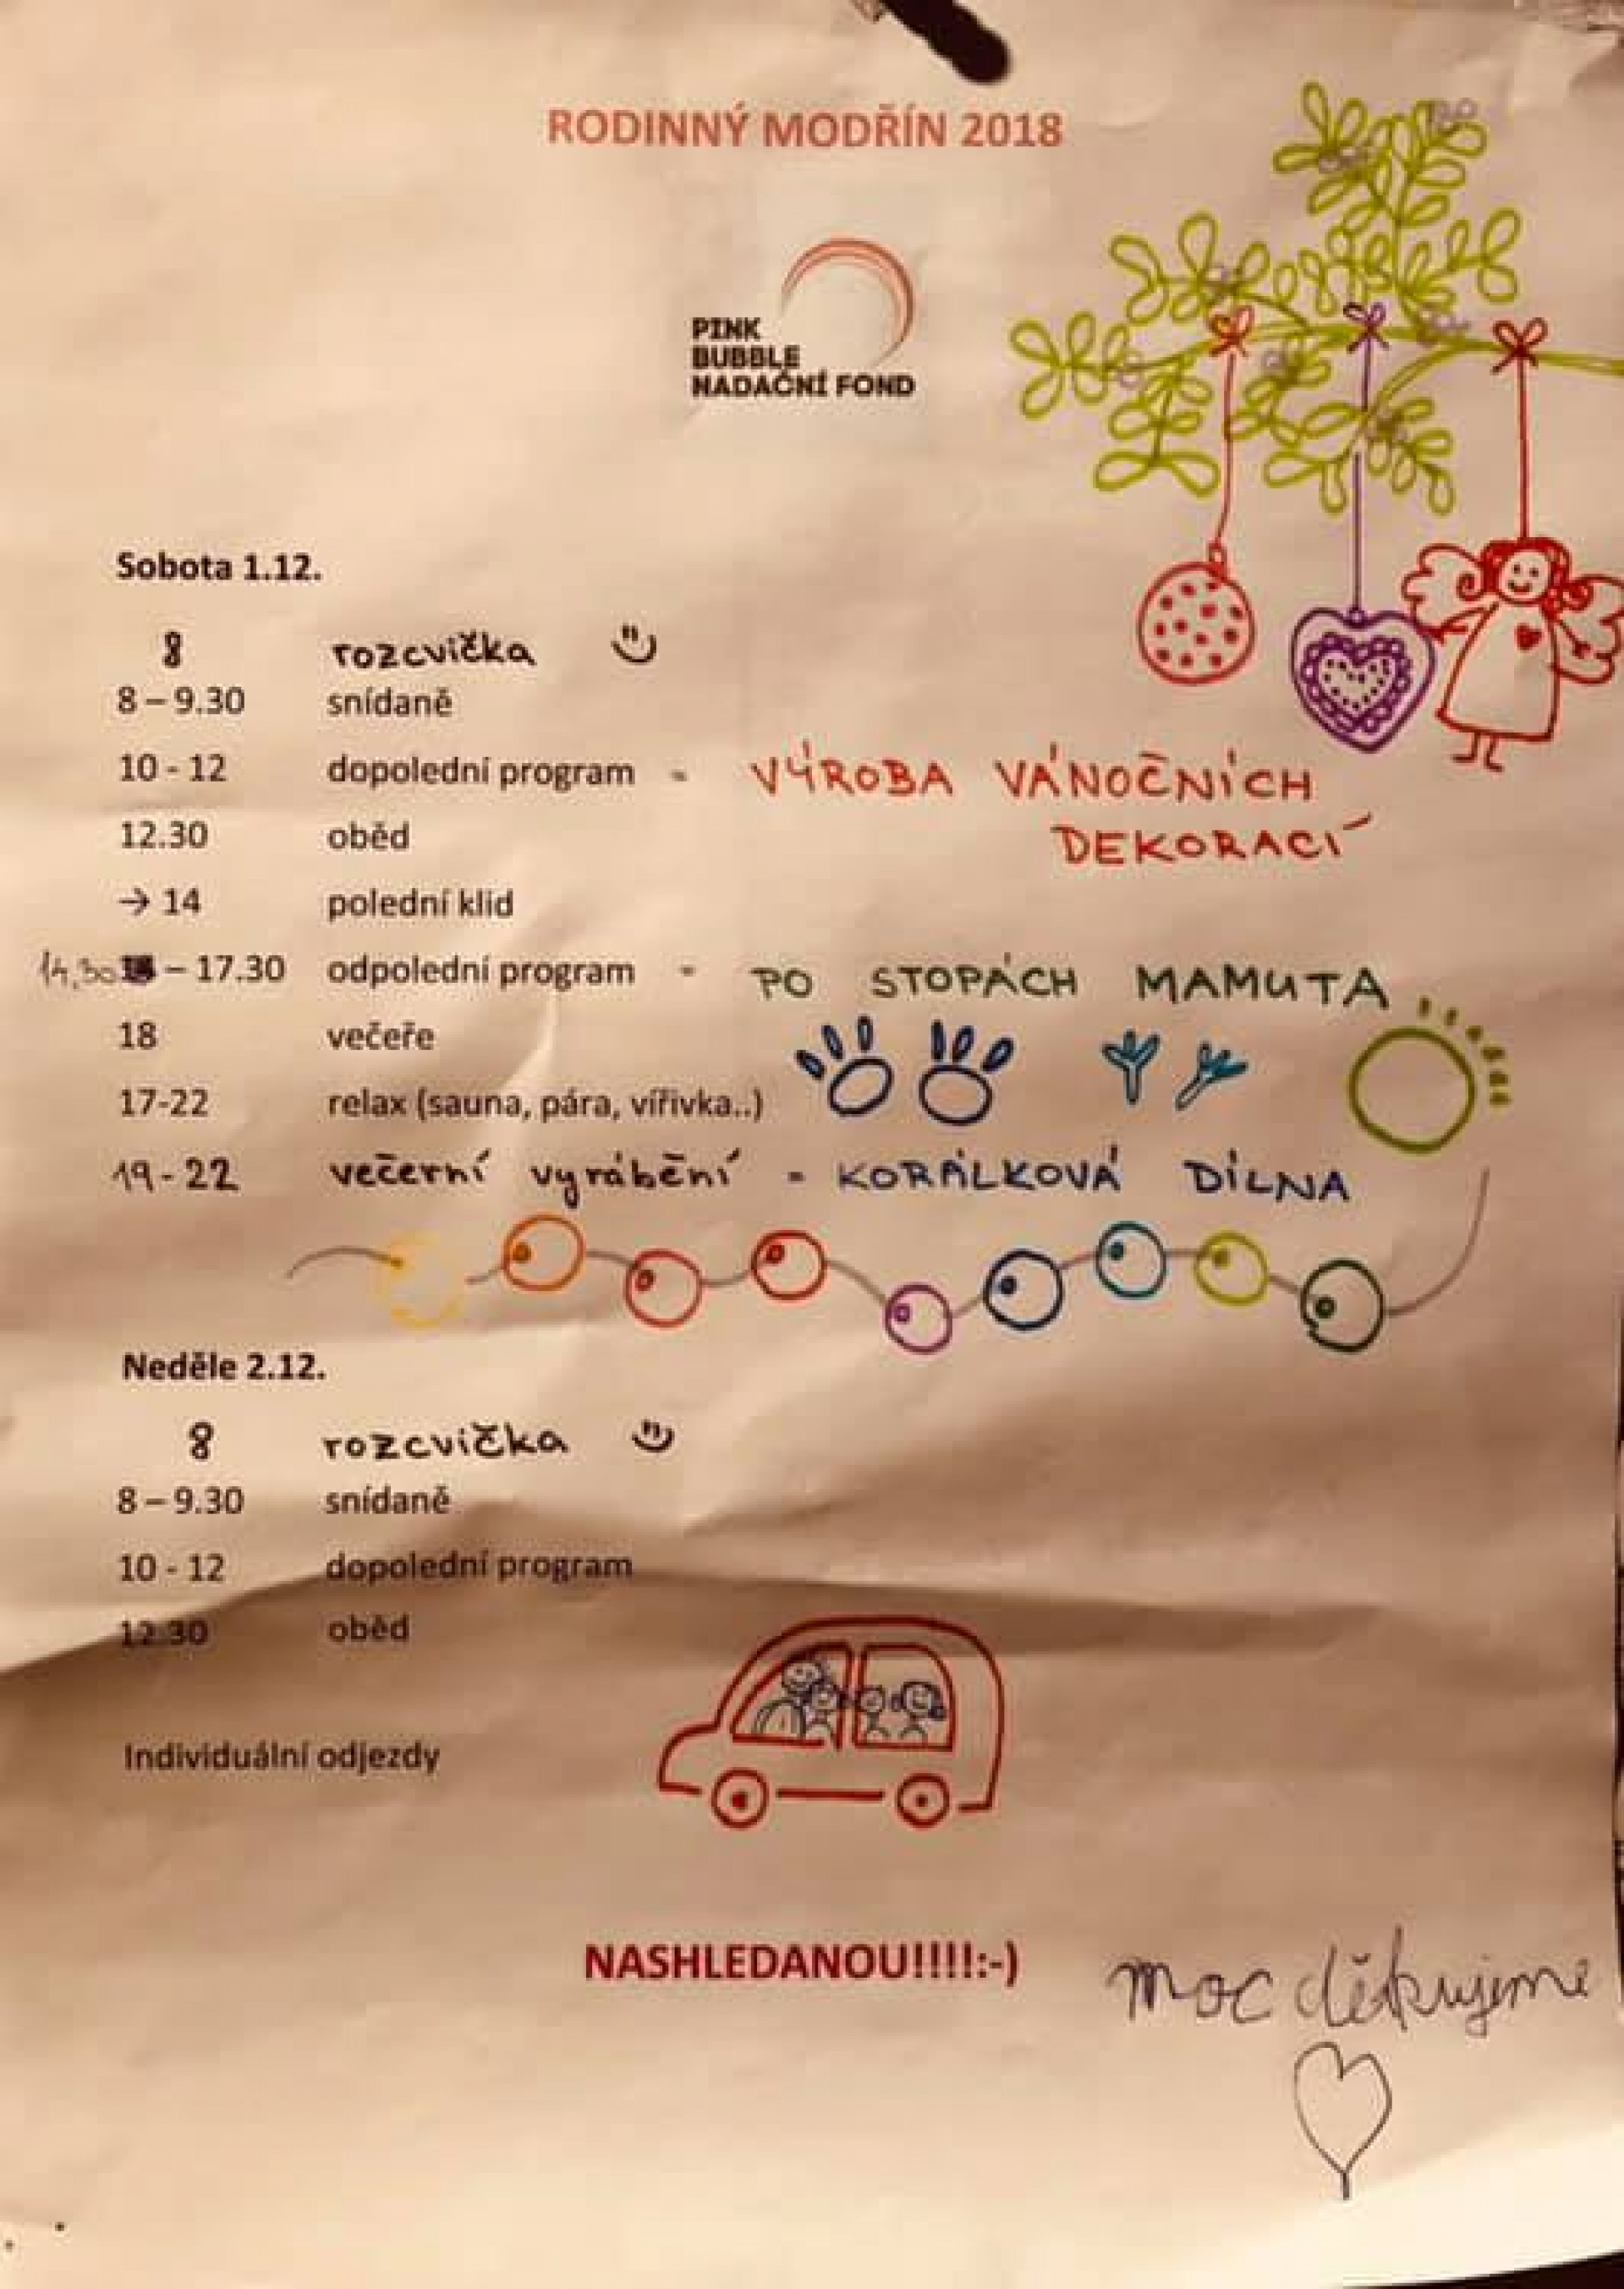 RODINNÝ MODŘÍN 2018
PINK
BUBBLE
NADAČNÍ FOND
Sobota 1.12.
8 rozcvička
8 – 9.30 snídaně
10 - 12 dopolední program - VÝROBA VÁNOČNÍCH
DEKORACÍ
12.30 oběd
→ 14 polední klid
14,30 – 17.30 odpolední program - PO STOPÁCH MAMUTA
18 večeře
17-22 relax (sauna, pára, vířivka..)
19 - 22 večerní vyrábění - KORÁLKOVÁ DÍLNA
Neděle 2.12.
8 rozcvička
8 – 9.30 snídaně
10 - 12 dopolední program
12.30 oběd
Individuální odjezdy
NASHLEDANOU!!!!:-)
moc děkujeme